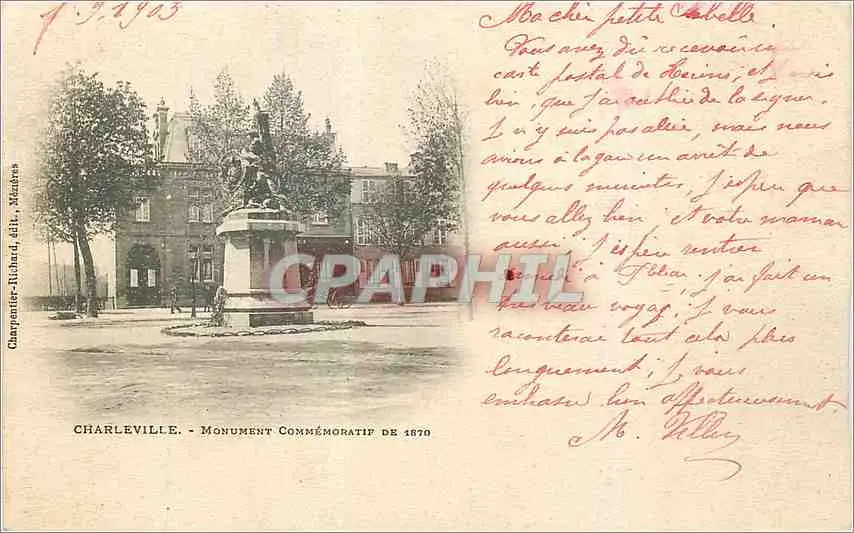 9.1903
Ma chère petite
Vous avez dû recevoir une
carte postal de Reims, et
bien, que j'ai oublié de la signer.
J n'y suis pas allée, mais nous
avions à la gare un arrêt de
quelques minutes, J'espère que
vous allez bien et votre maman
aussi. J'espère rentrer
samedi à j'ai fait un
beau voyag, J vous
raconterai tout cela plus
longuement, J vous
embrasse bien affectueusement
M.
CPAPHIL.com
CHARLEVILLE. - MONUMENT COMMÉMORATIF DE 1870
Charpentier-Richard, édit., Mézières